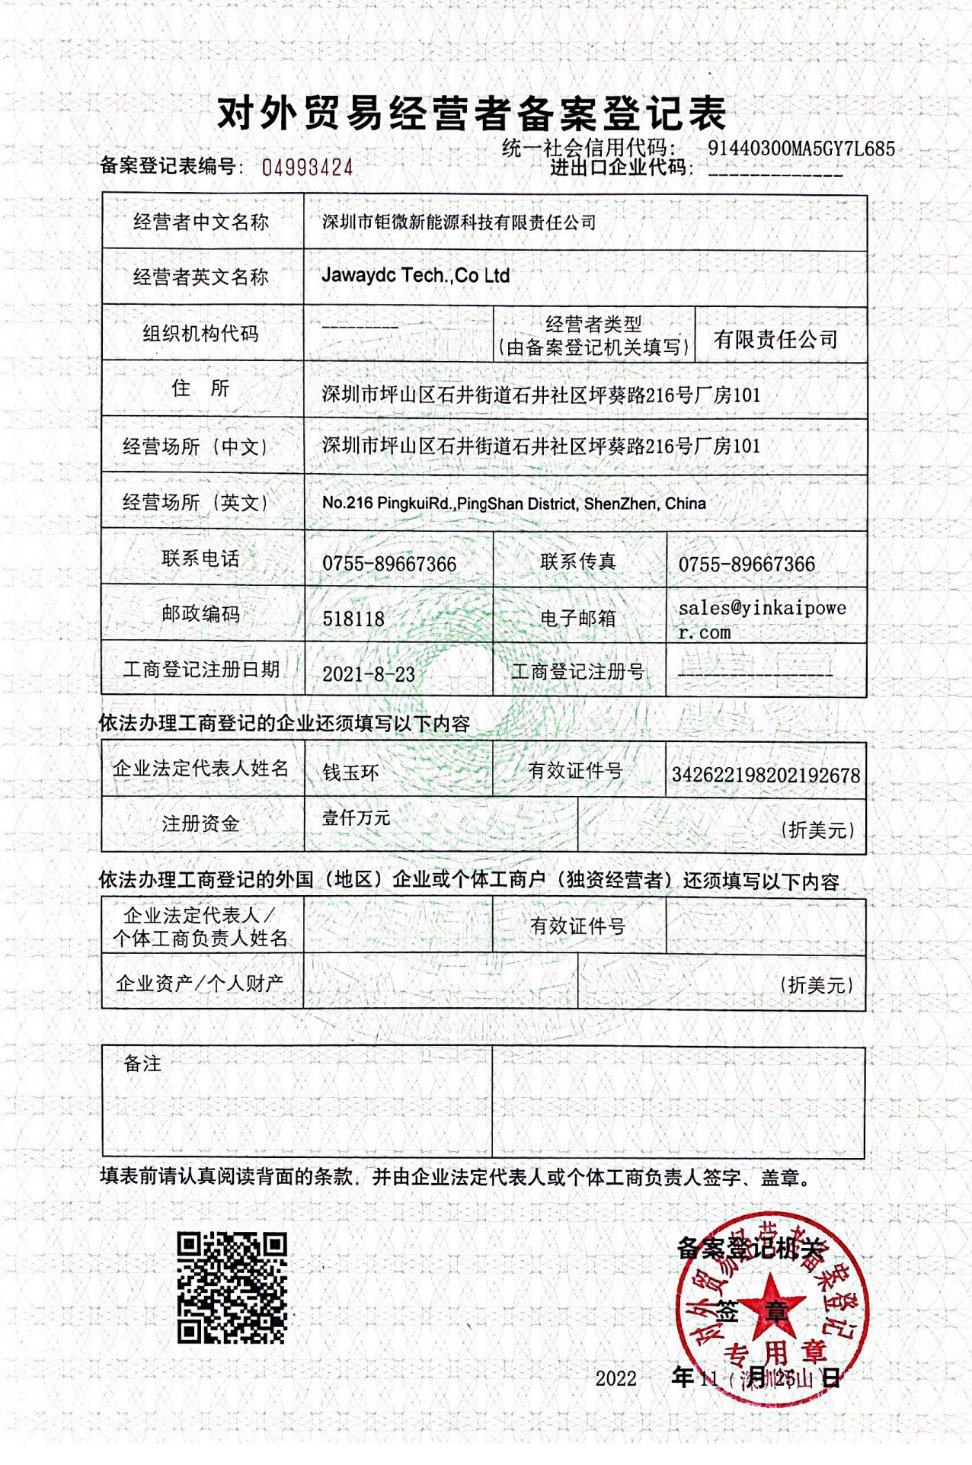 对外贸易经营者备案登记表
统一社会信用代码: 91440300MA5GY7L685
备案登记表编号: 04993424
进出口企业代码: -------------
经营者中文名称 深圳市钜微新能源科技有限责任公司
经营者英文名称 Jawaydc Tech.,Co Ltd
组织机构代码 --------- 经营者类型 有限责任公司
(由备案登记机关填写)
住 所 深圳市坪山区石井街道石井社区坪葵路216号厂房101
经营场所（中文） 深圳市坪山区石井街道石井社区坪葵路216号厂房101
经营场所（英文） No.216 PingkuiRd.,PingShan District, ShenZhen, China
联系电话 0755-89667366 联系传真 0755-89667366
邮政编码 518118 电子邮箱 sales@yinkaipowe
r.com
工商登记注册日期 2021-8-23 工商登记注册号 -----------------
依法办理工商登记的企业还须填写以下内容
企业法定代表人姓名 钱玉环 有效证件号 342622198202192678
注册资金 壹仟万元 (折美元)
依法办理工商登记的外国（地区）企业或个体工商户（独资经营者）还须填写以下内容
企业法定代表人/ 有效证件号
个体工商负责人姓名
企业资产/个人财产 (折美元)
备注
填表前请认真阅读背面的条款，并由企业法定代表人或个体工商负责人签字、盖章。
备案登记机关
签 章
对外贸易经营者备案登记
专用章
(深圳坪山)
2022 年 11 月 25 日